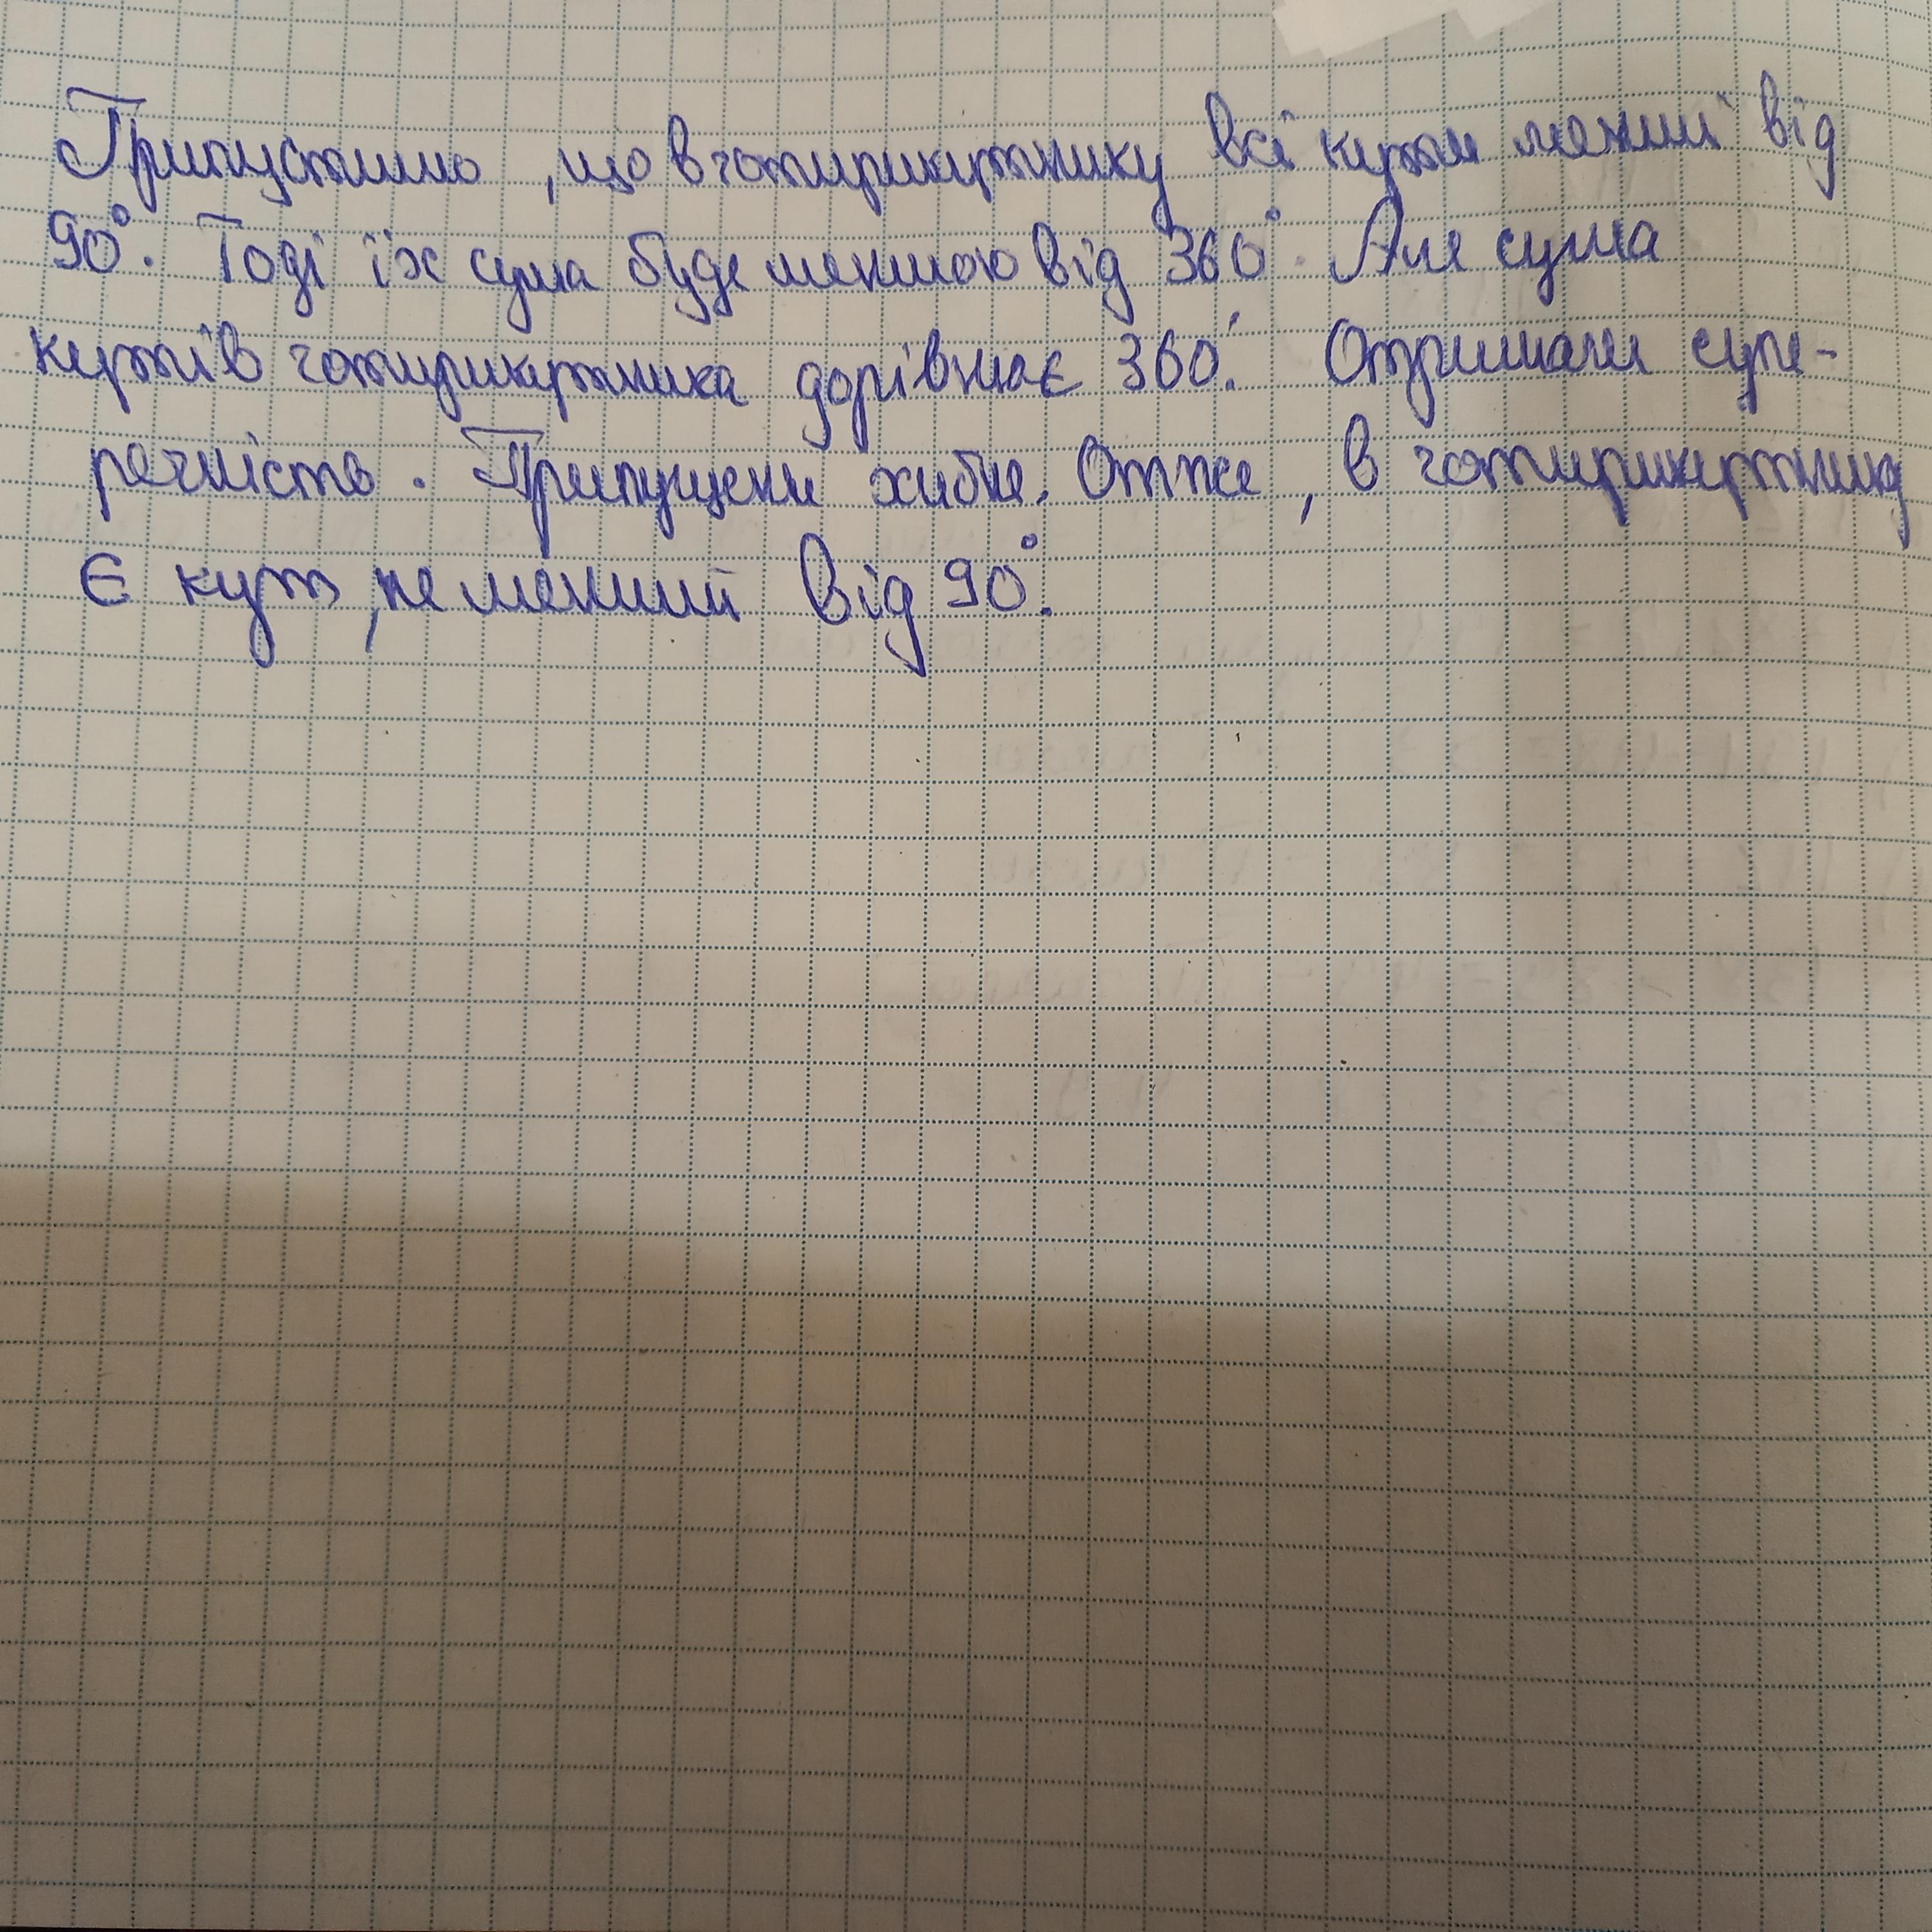 Припустимо, що в чотирикутнику всі кути менші від
90°. Тоді їх сума буде меншою від 360°. Але сума
кутів чотирикутника дорівнює 360°. Отримали супе-
речність. Припущене хибне. Отже, в чотирикутнику
є кут, не менший від 90°.